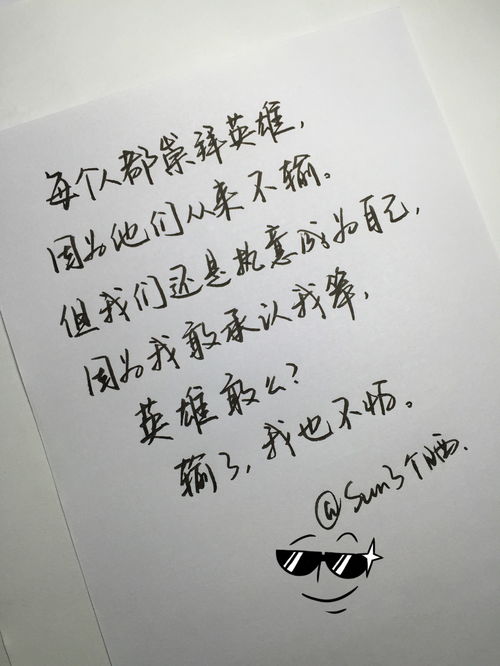 每个人都崇拜英雄,
因为他们从来不输。
但我们还是执意成为自己,
因为我敢承认我笨,
英雄敢么?
输了,我也不怕。
@Sun3个晒.